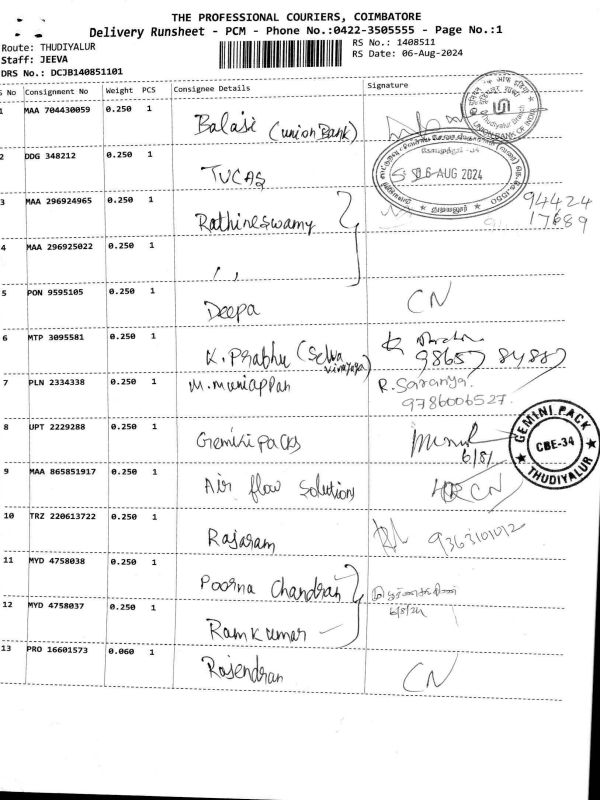 THE PROFESSIONAL COURIERS, COIMBATORE
Delivery Runsheet - PCM - Phone No.:0422-3505555 - Page No.:1
Route: THUDIYALUR
RS No.: 1408511
Staff: JEEVA
RS Date: 06-Aug-2024
DRS No.: DCJB140851101
S No Consignment No Weight PCS Consignee Details Signature
1 MAA 704430059 0.250 1 Balaji (union Bank)
UNION BANK OF INDIA
Thudiyalur Branch
2 DDG 348212 0.250 1 TUCAS
06 AUG 2024
3 MAA 296924965 0.250 1 Rathineswamy 94424
17689
4 MAA 296925022 0.250 1 , ,
5 PON 9595105 0.250 1 Deepa CN
6 MTP 3095581 0.250 1 K. Prabhu (Selva
vinayaga)
98657 84887
7 PLN 2334338 0.250 1 M. Muniappan R. Saranya.
9786006527.
8 UPT 2229288 0.250 1 Gemini packs
6/8/
GEMINI PACK
CBE-34
THUDIYALUR
9 MAA 865851917 0.250 1 Air flow Solutions CN
10 TRZ 220613722 0.250 1 Rajaram 9363101012
11 MYD 4758038 0.250 1 Poorna Chandran
6/8/24
12 MYD 4758037 0.250 1 Ramkumar
13 PRO 16601573 0.060 1 Rajendran CN